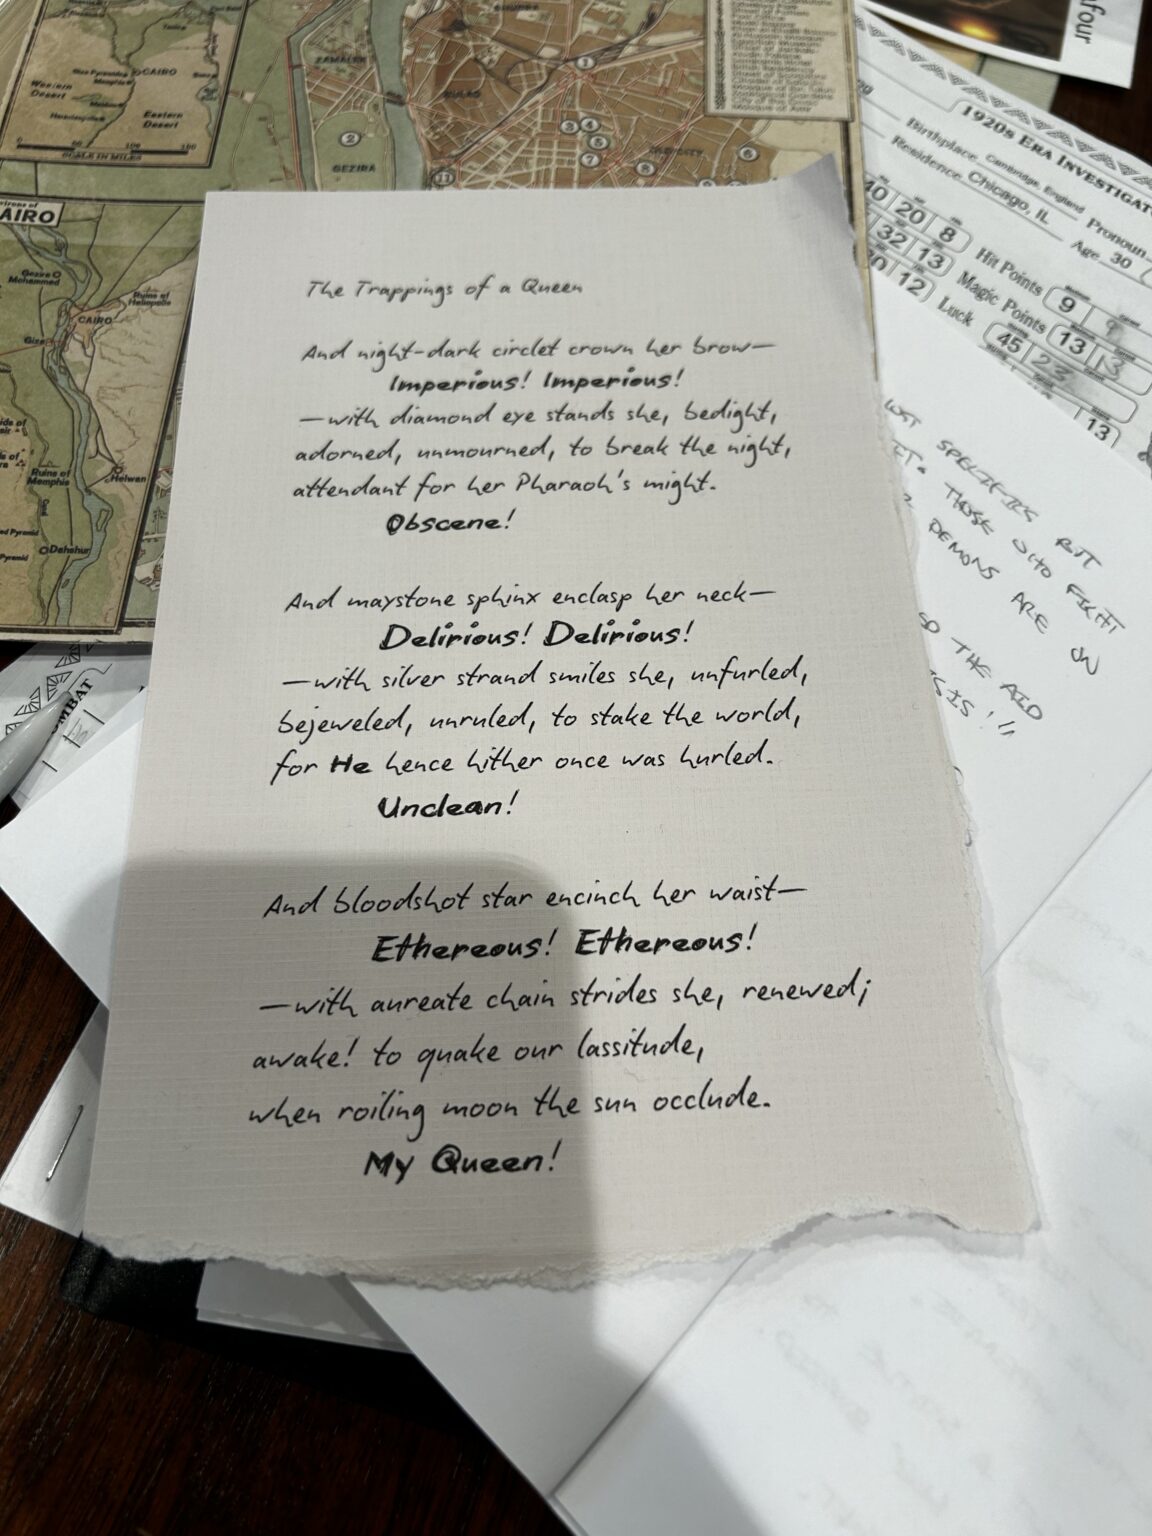 Western
Desert
CAIRO
Eastern
Desert
SCALE IN MILES
ZAMALEK
BULAQ
GEZIRA
1
2
3
4
5
6
7
8
11
four
1920s ERA INVESTIGAT
Birthplace Cambridge, England
Pronoun
Residence Chicago, IL
Age 30
40 20 8
32 13
12
Hit Points 9 9
Magic Points 13 13
Luck 45 23
13
AIRO
Gezire
Mohammed
Ruins of
Heliopolis
CAIRO
Giza
Ruins of
Memphis
Helwan
Dahshur
Pyramid
OMBAT
The Trappings of a Queen
And night-dark circlet crown her brow—
Imperious! Imperious!
—with diamond eye stands she, bedight,
adorned, unmourned, to break the night,
attendant for her Pharaoh's might.
Obscene!
And maystone sphinx enclasp her neck—
Delirious! Delirious!
—with silver strand smiles she, unfurled,
bejeweled, unruled, to stake the world,
for He hence hither once was hurled.
Unclean!
And bloodshot star encinch her waist—
Ethereous! Ethereous!
—with aureate chain strides she, renewed;
awake! to quake our lassitude,
when roiling moon the sun occlude.
My Queen!
SPECIFICS BUT
THOSE WHO FIGHT
DEMONS ARE ON
THE AID
ISIS!!